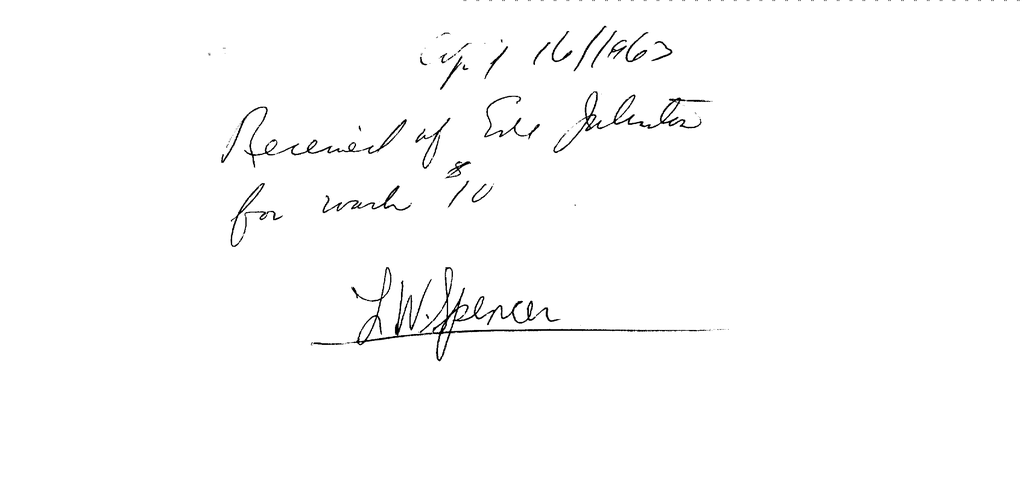 16/1963
Received of Erle Johnston
for work $10
L W. Spencer